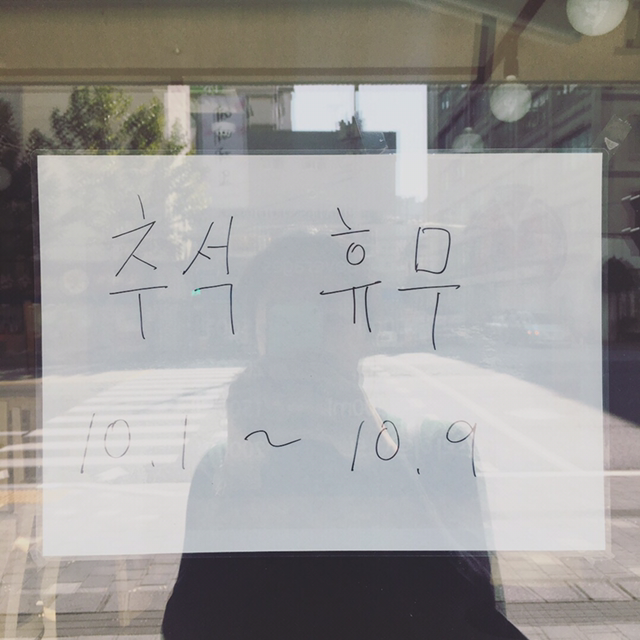 추석 휴무
10.1 ~ 10.9